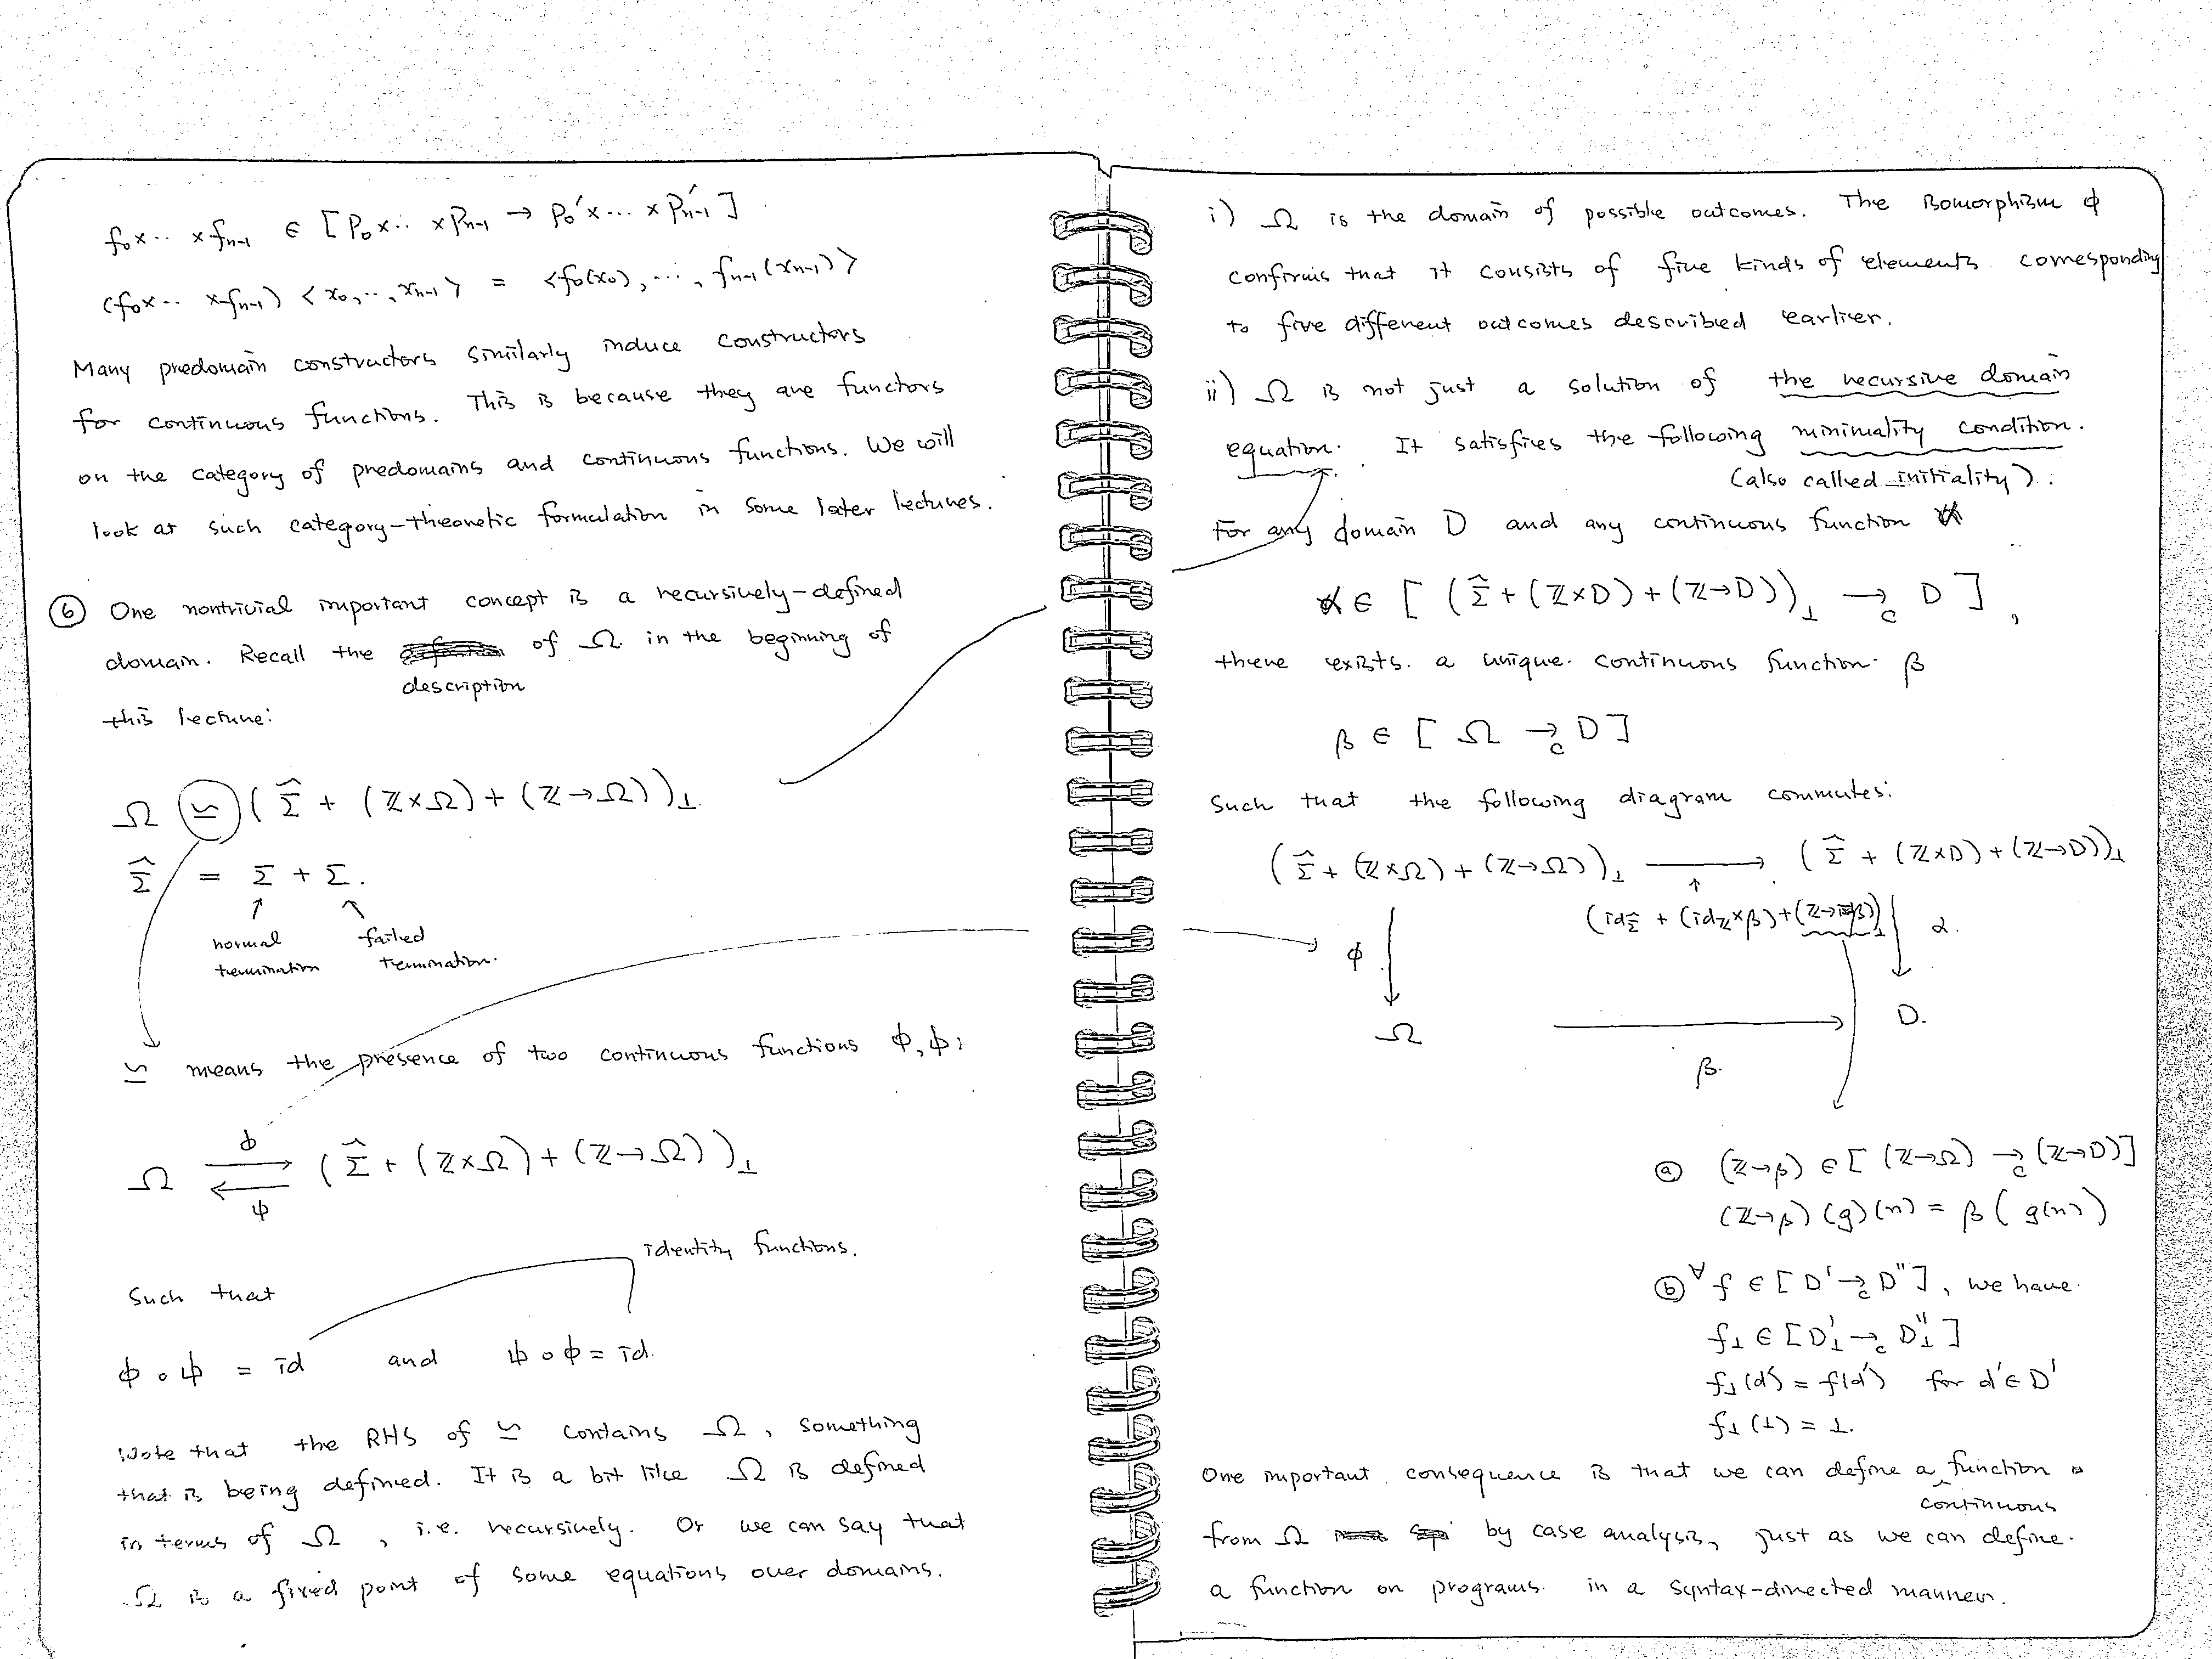 f₀×·· ×fₙ₋₁ ∈ [P₀×·· ×Pₙ₋₁ → P₀'×... ×Pₙ₋₁']
(f₀×·· ×fₙ₋₁) <x₀,··,xₙ₋₁> = <f₀(x₀), ···, fₙ₋₁(xₙ₋₁)>
Many predomain constructors similarly induce constructors
for continuous functions. This is because they are functors
on the category of predomains and continuous functions. We will
look at such category-theoretic formulation in some later lectures.
⑥ One nontrivial important concept is a recursively-defined
domain. Recall the of Ω in the beginning of
description
this lecture:
Ω ≃ ( Σ̂ + (ℤ×Ω) + (ℤ→Ω) )⊥.
Σ̂ = Σ + Σ.
↑ ↑
normal failed
termination termination.
≃ means the presence of two continuous functions ϕ, ψ:
ϕ
Ω ⇄ ( Σ̂ + (ℤ×Ω) + (ℤ→Ω) )⊥
ψ
identity functions.
Such that
ϕ ∘ ψ = id and ψ ∘ ϕ = id.
Note that the RHS of ≃ contains Ω, something
that is being defined. It is a bit like Ω is defined
in terms of Ω, i.e. recursively. Or we can say that
Ω is a fixed point of some equations over domains.
i) Ω is the domain of possible outcomes. The isomorphism ϕ
confirms that it consists of five kinds of elements. corresponding
to five different outcomes described earlier.
ii) Ω is not just a solution of the recursive domain
equation. It satisfies the following minimality condition.
(also called initiality).
For any domain D and any continuous function α
α ∈ [ ( Σ̂ + (ℤ×D) + (ℤ→D) )⊥ →c D ],
there exists a unique continuous function β
β ∈ [ Ω →c D ]
Such that the following diagram commutes:
( Σ̂ + (ℤ×Ω) + (ℤ→Ω) )⊥ ⟶ ( Σ̂ + (ℤ×D) + (ℤ→D) )⊥
↑
(id_Σ̂ + (id_ℤ×β) + (ℤ→β))⊥
ϕ ↓ ↓ α.
Ω ⟶ D.
β.
ⓐ (ℤ→β) ∈ [ (ℤ→Ω) →c (ℤ→D) ]
(ℤ→β) (g) (n) = β ( g(n) )
ⓑ ∀ f ∈ [ D' →c D'' ], we have
f⊥ ∈ [ D'⊥ →c D''⊥ ]
f⊥(d') = f(d') for d' ∈ D'
f⊥(⊥) = ⊥.
One important consequence is that we can define a function
continuous
from Ω by case analysis, just as we can define
a function on programs in a syntax-directed manner.